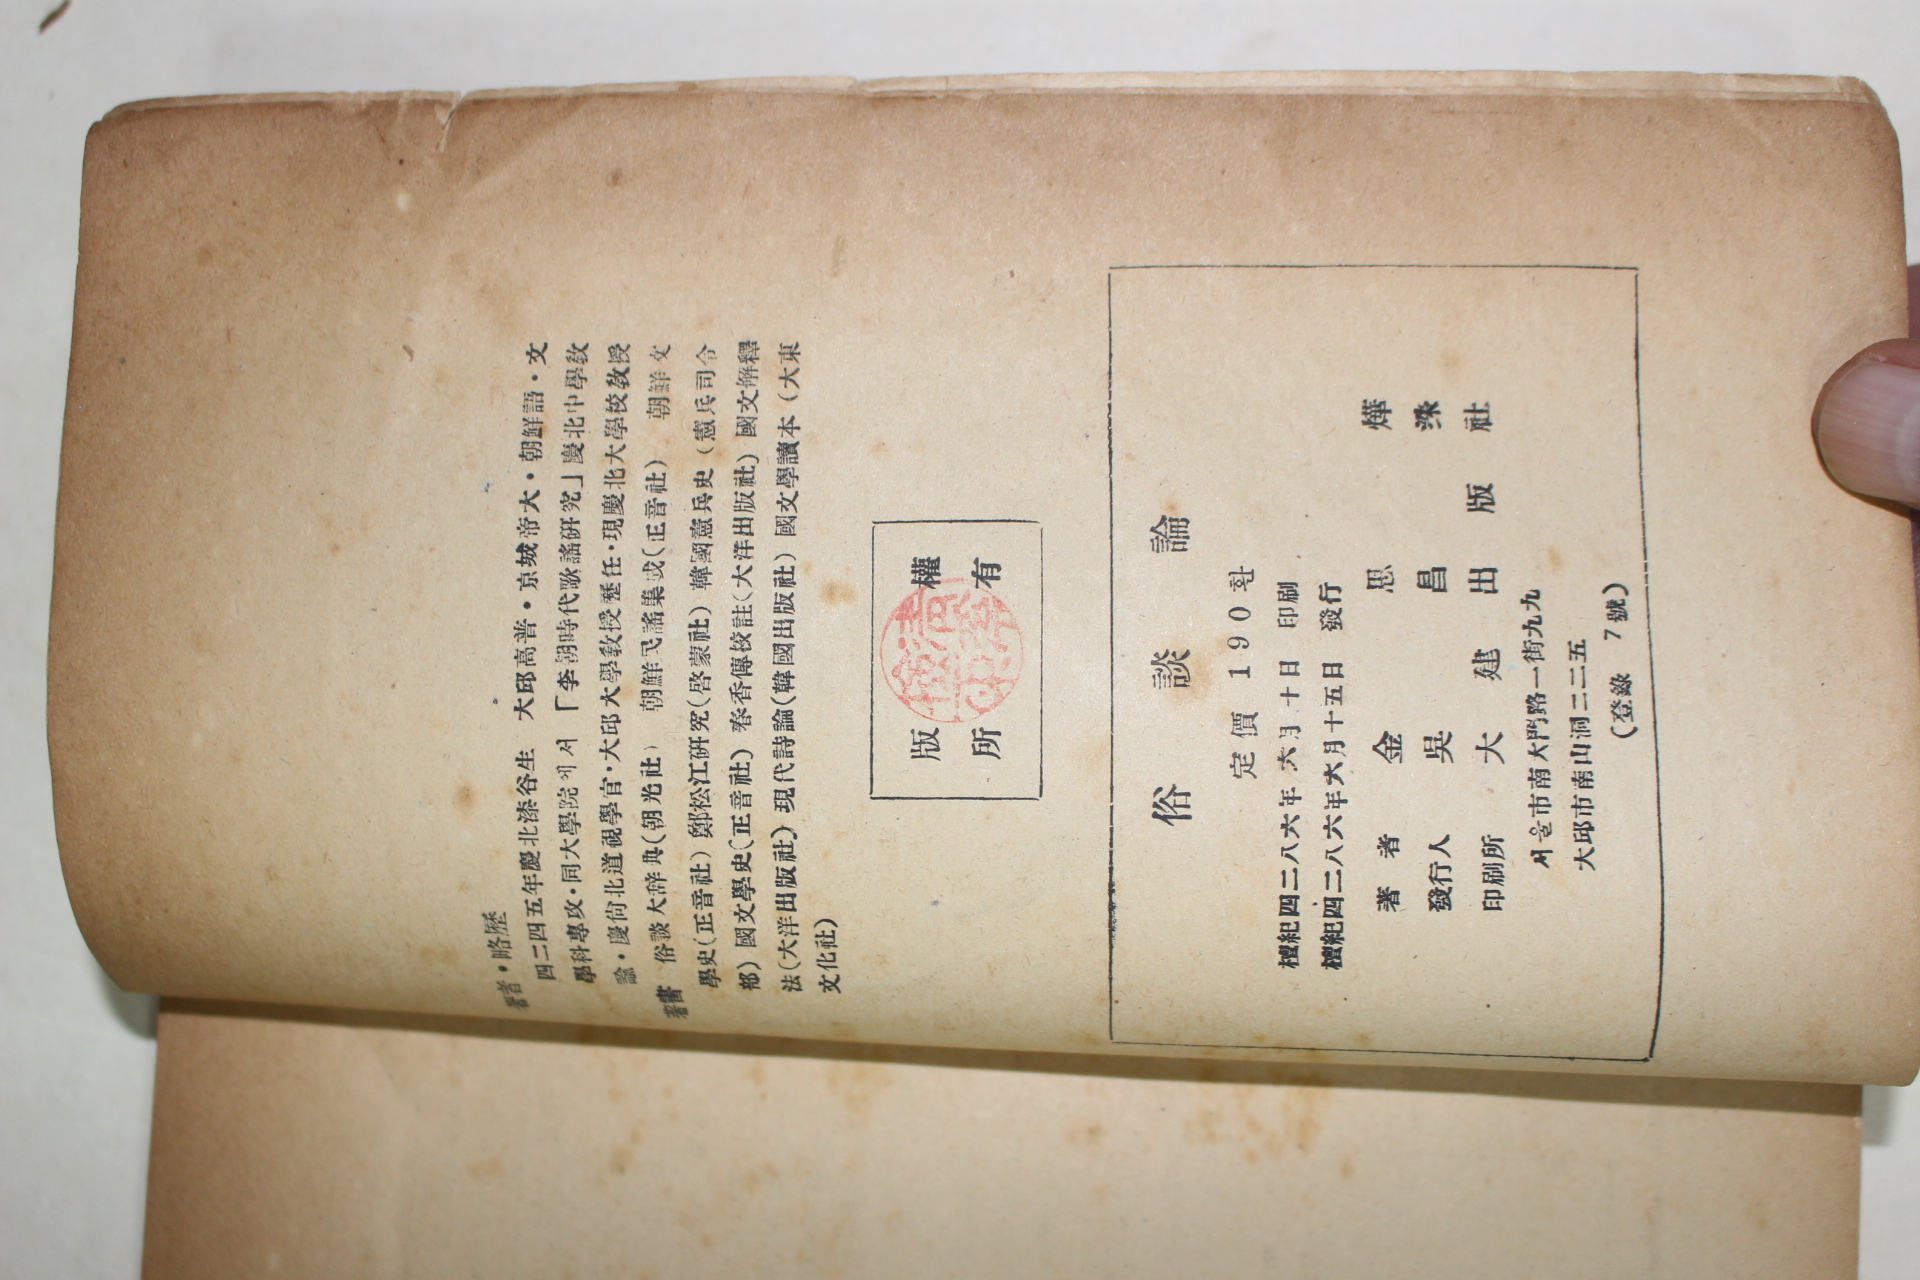 著者·略歷
四二四五年慶北漆谷生 大邱高普·京城帝大·朝鮮語·文
學科專攻·同大學院에서「李朝時代歌謠硏究」慶北中學敎
諭·慶尙北道視學官·大邱大學敎授歷任·現慶北大學校敎授
著書 俗談大辞典(朝光社) 朝鮮民謠集成(正音社) 朝鮮文
學史(正音社) 鄭松江硏究(啓蒙社) 韓國憲兵史(憲兵司令
部) 國文學史(正音社) 春香傳校註(大洋出版社) 國文解釋
法(大洋出版社) 現代詩論(韓國出版社) 國文學讀本(大東
文化社)
版權
所有
俗談論
定價 190환
檀紀四二八六年六月十日 印刷
檀紀四二八六年六月十五日 發行
著者 金思燁
發行人 吳昌洙
印刷所 大建出版社
서울市南大門路一街九九
大邱市南山洞二二五
(登錄 7號)